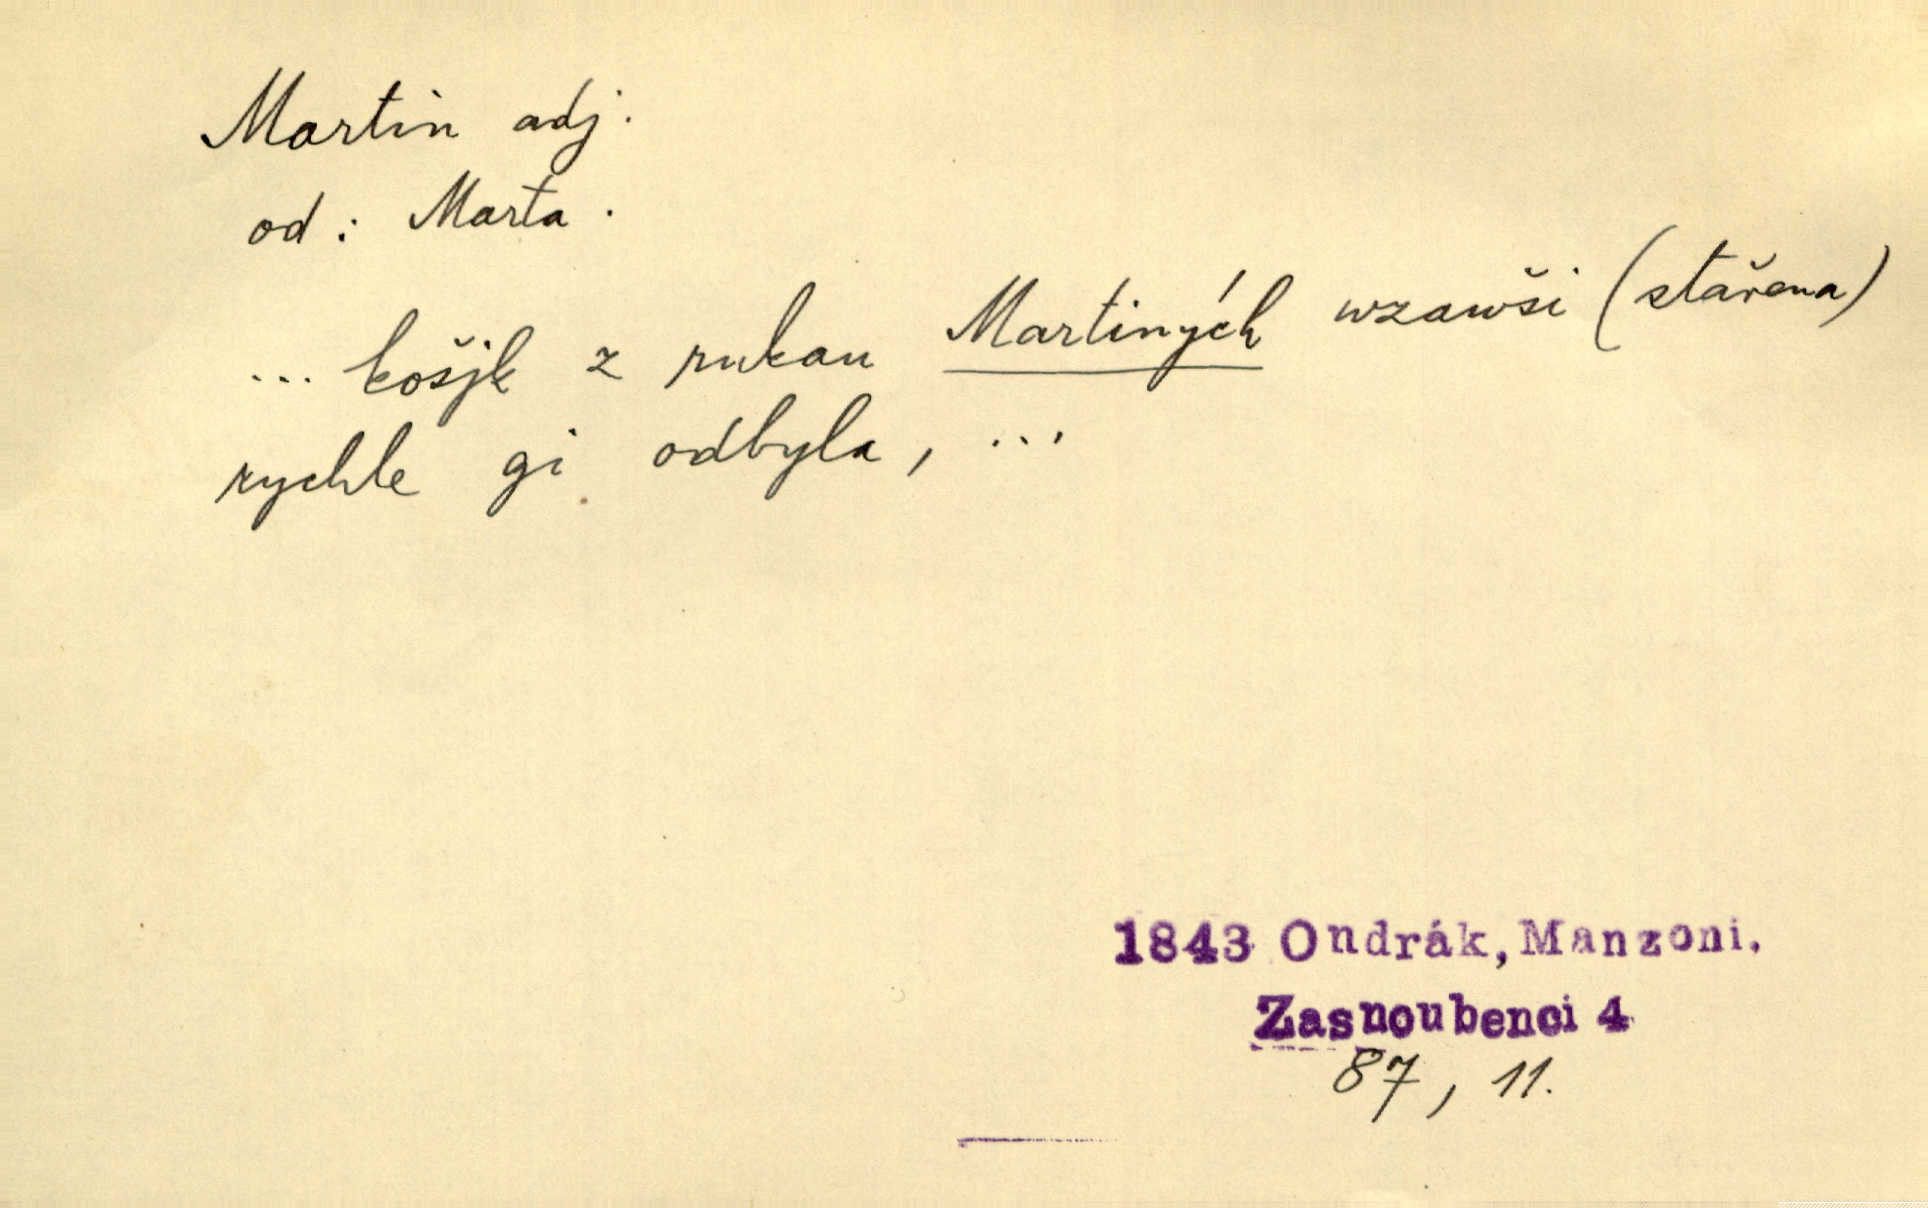 Martin adj.
od : Marta .
... košjk z rukau Martiných wzawši (stařena)
rychle gi odbyla, ...
1843 Ondrák, Manzoni.
Zasnoubenci 4
87, 11.